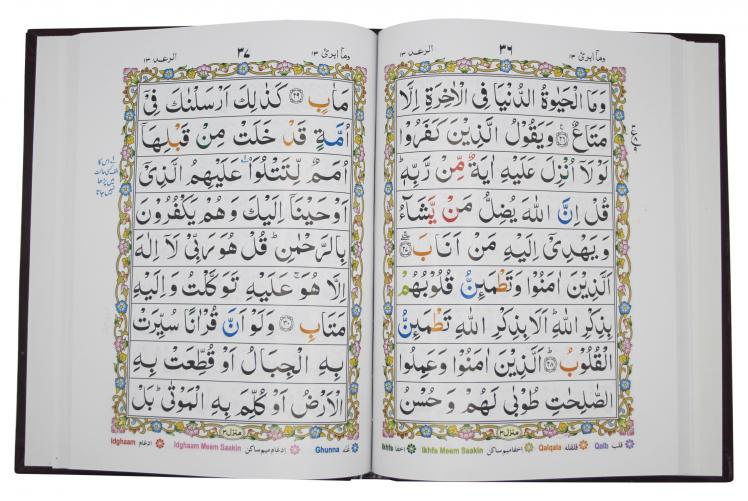 وما ابرئ ١٣
٣٦
الرعد ١٣
وَمَا الْحَيٰوةُ الدُّنْيَا فِي الْاٰخِرَةِ اِلَّا
مَتَاعٌ ۝٢٦ وَيَقُوْلُ الَّذِيْنَ كَفَرُوْا
لَوْلَآ اُنْزِلَ عَلَيْهِ اٰيَةٌ مِّنْ رَّبِّهٖ ؕ
قُلْ اِنَّ اللّٰهَ يُضِلُّ مَنْ يَّشَآءُ
وَيَهْدِيْٓ اِلَيْهِ مَنْ اَنَابَ ۝٢٧
اَلَّذِيْنَ اٰمَنُوْا وَتَطْمَئِنُّ قُلُوْبُهُمْ
بِذِكْرِ اللّٰهِ ؕ اَلَا بِذِكْرِ اللّٰهِ تَطْمَئِنُّ
الْقُلُوْبُ ؕ ۝٢٨ اَلَّذِيْنَ اٰمَنُوْا وَعَمِلُوا
الصّٰلِحٰتِ طُوْبٰى لَهُمْ وَحُسْنُ
منزل ٣
قلب Qalb
قلقله Qalqala
اخفا میم ساکن Ikhfa Meem Saakin
اخفا Ikhfa
وما ابرئ ١٣
٣٧
الرعد ١٣
مَاٰبٍ ۝٢٩ كَذٰلِكَ اَرْسَلْنٰكَ فِيْٓ
اُمَّةٍ قَدْ خَلَتْ مِنْ قَبْلِهَآ
اُمَمٌ لِّتَتْلُوَا۟ عَلَيْهِمُ الَّذِيْٓ
اَوْحَيْنَآ اِلَيْكَ وَهُمْ يَكْفُرُوْنَ
بِالرَّحْمٰنِ ؕ قُلْ هُوَ رَبِّيْ لَآ اِلٰهَ
اِلَّا هُوَ ۚ عَلَيْهِ تَوَكَّلْتُ وَاِلَيْهِ
مَتَابِ ۝٣٠ وَلَوْ اَنَّ قُرْاٰنًا سُيِّرَتْ
بِهِ الْجِبَالُ اَوْ قُطِّعَتْ بِهِ
الْاَرْضُ اَوْ كُلِّمَ بِهِ الْمَوْتٰى ؕ بَلْ
منزل ٣
غنه Ghunna
ادغام میم ساکن Idghaam Meem Saakin
ادغام Idghaam